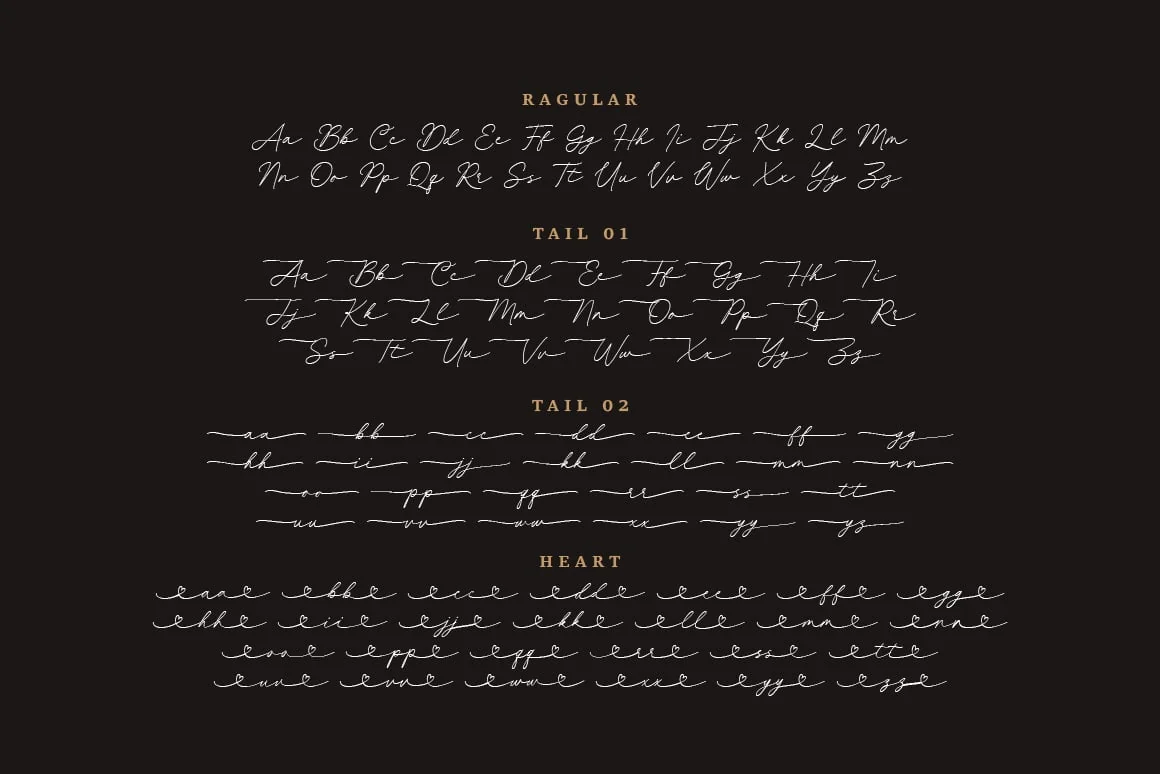 RAGULAR
Aa Bb Cc Dd Ee Ff Gg Hh Ii Jj Kk Ll Mm
Nn Oo Pp Qq Rr Ss Tt Uu Vv Ww Xx Yy Zz
TAIL 01
Aa Bb Cc Dd Ee Ff Gg Hh Ii
Jj Kk Ll Mm Nn Oo Pp Qq Rr
Ss Tt Uu Vv Ww Xx Yy Zz
TAIL 02
aa bb cc dd ee ff gg
hh ii jj kk ll mm nn
oo pp qq rr ss tt
uu vv ww xx yy yz
HEART
aa bb cc dd ee ff gg
hh ii jj kk ll mm nn
oo pp qq rr ss tt
uu vv ww xx yy zz